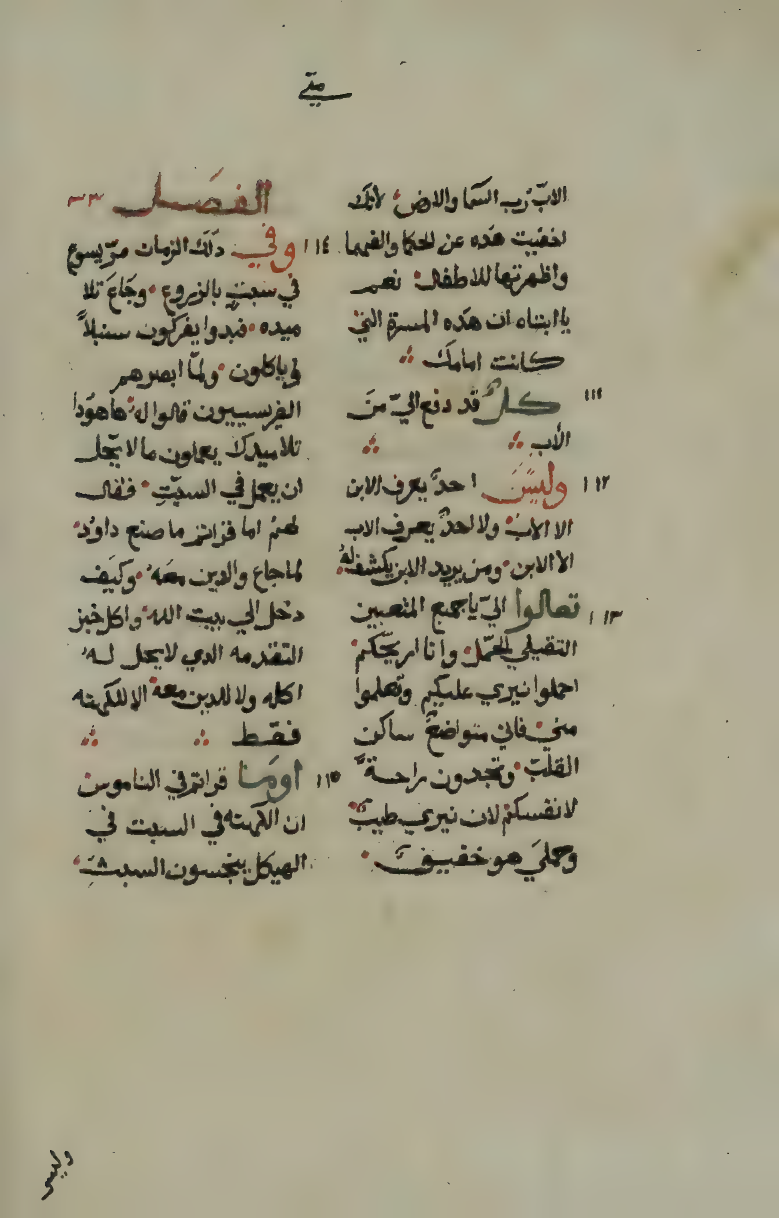 متي
الابّ رب السما والارض؛ لانك
اخفيت هده عن الحكما والفهما
واظهرتها للاطفال؛ نعم
يا ابتاه ان هده المسرة التي
كانت امامك
١١١ كلٌ قد دفع اليّ من
الأب
١١٢ وليس احدٌ يعرف الابن
الا الابُ ولا احدٌ يعرف الاب
الا الابن؛ ومن يريد الابن يكشف له
١١٣ تعالوا اليّ يا جميع المتعبين
الثقيلي الحمل؛ وانا اريحكم
احملوا نيري عليكم وتعلموا
مني؛ فاني متواضعٌ ساكن
القلب؛ وتجدون راحةً
لانفسكم لان نيري طيبٌ
وحملي هو خفيفٌ
الفصل ٣٣
١١٤ وفي دلك الزمان مرّ يسوع
في سبتٍ بالزروع؛ وجاع تلا
ميده؛ فبدوا يفركون سنبلاً
وياكلون؛ ولمّا ابصرهم
الفريسييون قالوا له؛ هاهودا
تلاميدك يعملون ما لا يحل
ان يعمل في السبتِ؛ فقال
لهم اما قراتم ما صنع داود؛
لما جاع والدين معه؛ وكيف
دخل الي بيت الله؛ واكل خبز
التقدمه الدي لا يحل له
اكله ولا للدين معه الا للكهنه
فقط
١١٥ اوما قراتم في الناموس
ان الكهنه في السبت في
الهيكل ينجسون السبت؛
وليس